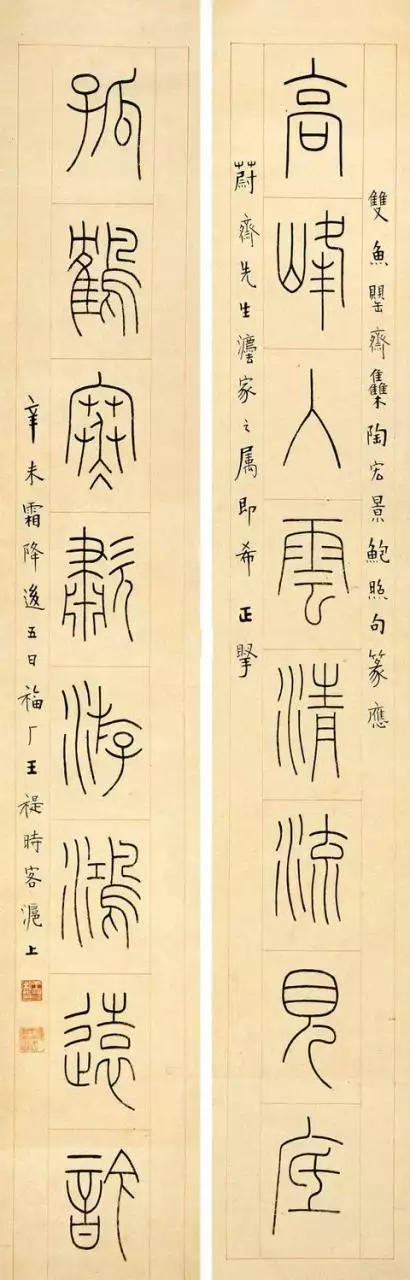 雙魚罌齋雧陶宏景鮑照句篆應
高峰入雲清流見底
蔚齊先生灋家之属即希正掔
孤鶴寒歗游鴻遠訡
辛未霜降後五日福厂王禔時客滬上